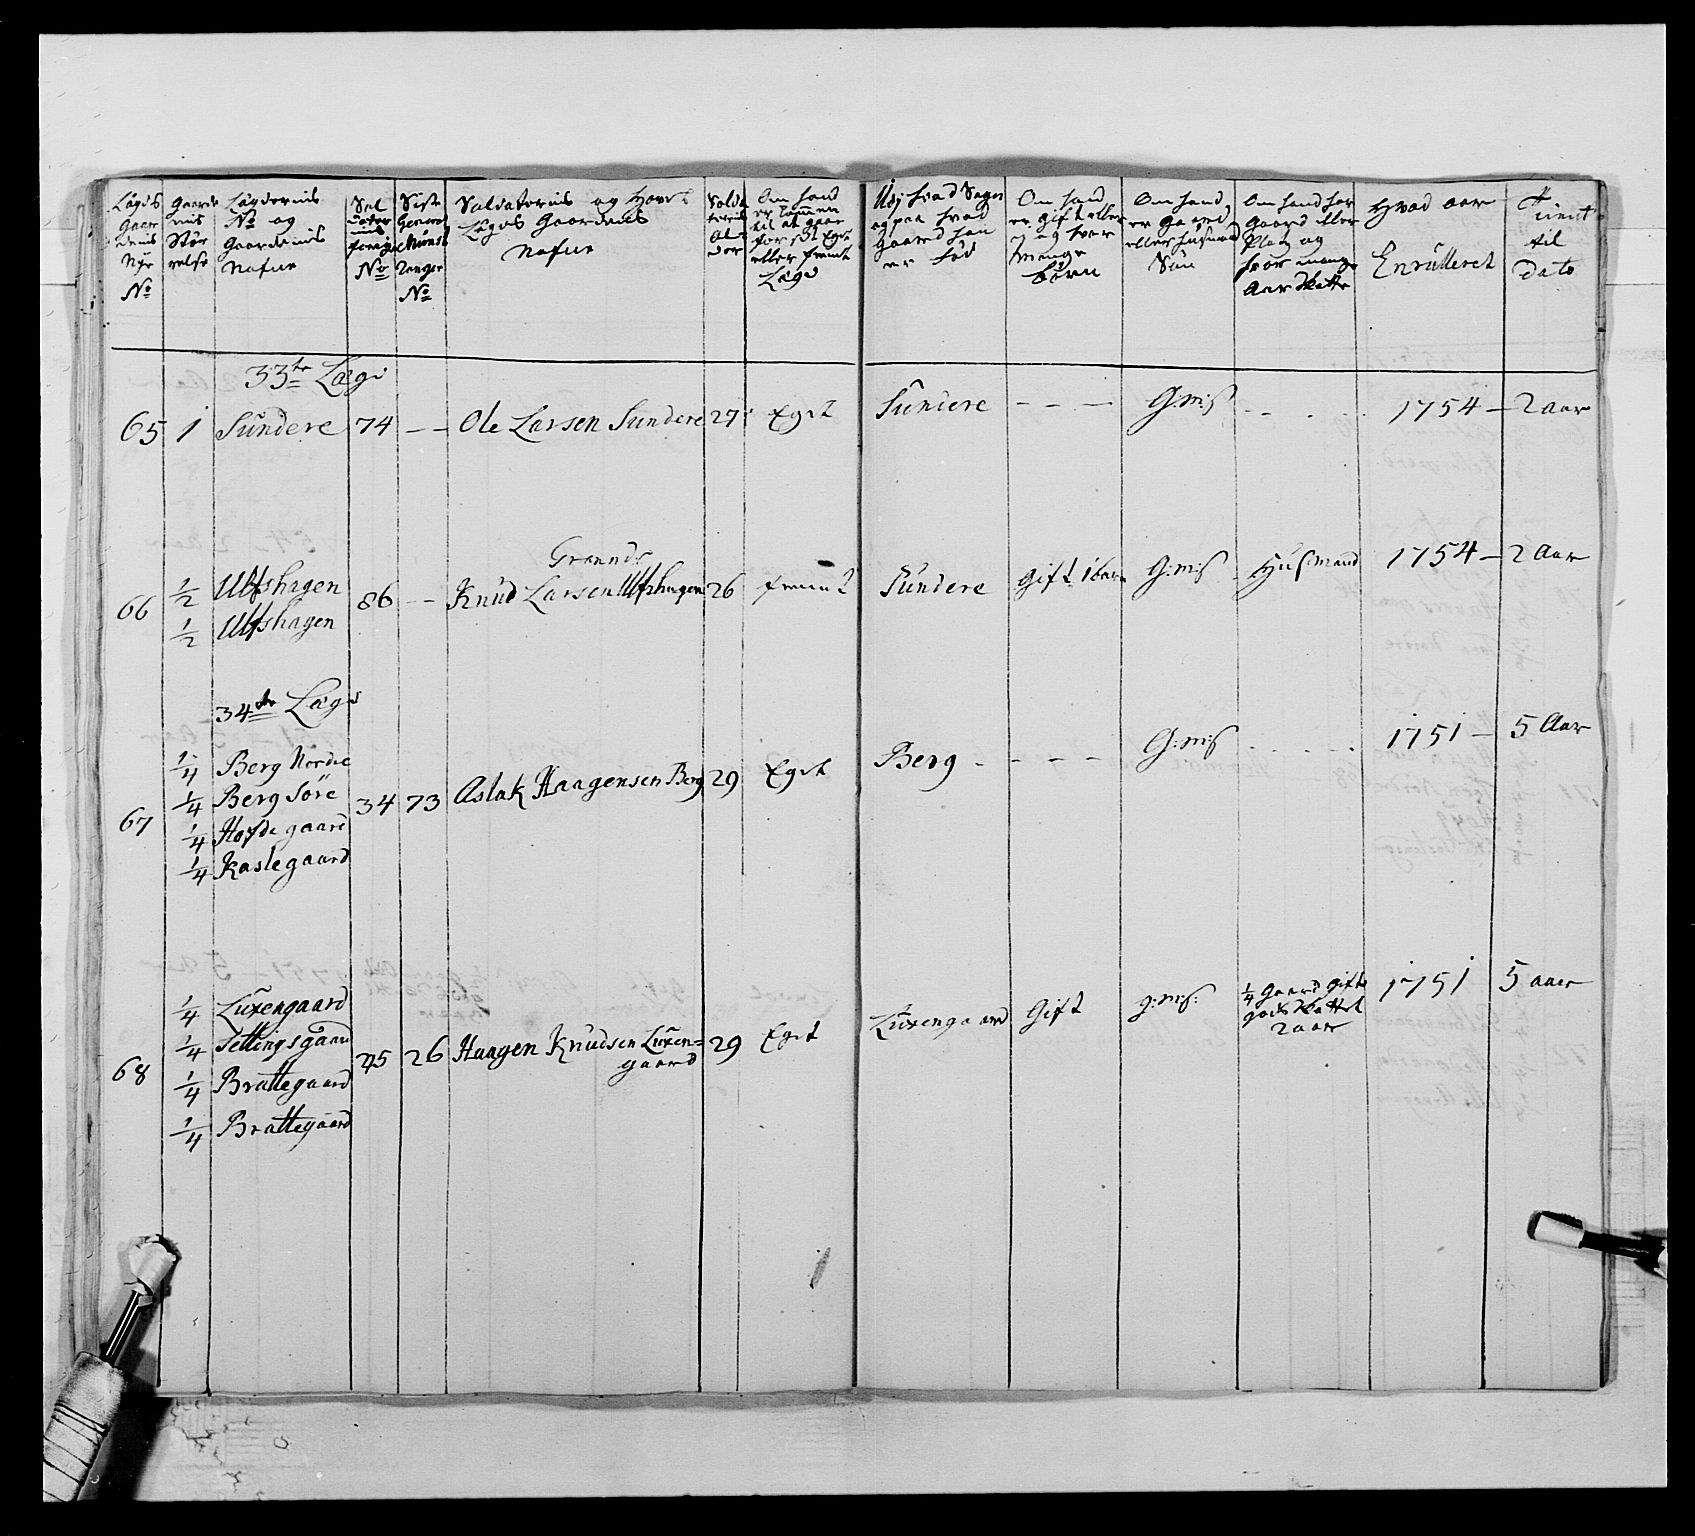 Lægds Gaardenis Nye No
Gaardenis Størrelse
Lægdernis No og Gaardernis Nafne
Soldaternis forrige No
Siste General Mønst No
Soldaternis og Hans Lægds Gaardens Nafne
Soldaternis Alder
Om hand er kommen til at gaae for sit Eget eller fremt Lægd
Udj hvad Sogn og paa hvad Gaard han er fød
Om hand er gift eller j og hvor mange børn
Om hand er Gaard eller husmands Søn
Om hand har Gaard eller Plads og hvor mange Aar skatte
Hvad aar Enrulleret
Tient til dato
33te Lægd
65 1 Sundere 74 — — Ole Larsen Sundere 27 Eget Sundere — — — G:m:S 1754 — 2 aar
66 1/2 Ulfshagen
1/2 Ulfshagen
86 — — Knud Larsen Ulfshagen 26 fremt Sundere Gift 1 barn G:m:S Husmand 1754 — 2 Aar
34te Lægd
67 1/4 Berg Nordre
1/4 Berg Søre
1/4 Hofdegaard
1/4 Kaslegaard
34 73 Aslak Haagensen Berg 29 Eget Berg - - - - G:m:S 1751 — 5 Aar
68 1/4 Luxengaard
1/4 Settingsgaard
1/4 Brattegaard
1/4 Brattegaard
45 26 Haagen Knudsen Luxen=
gaard 29 Eget Luxengaard Gift g:m:S: 1/4 Gaard Gifte
gods skattet
2 aar 1751 5 aar